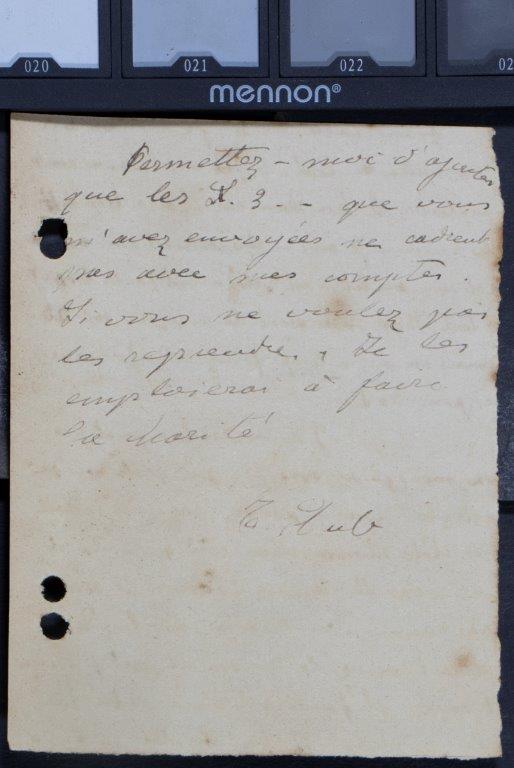 020 021 022 02
mennon®
Permettez - moi d'ajouter
que les £. 3. - que vous
m'avez envoyées ne cadrent
pas avec mes comptes.
Si vous ne voulez pas
les reprendre, Je les
emploierai à faire
la charité